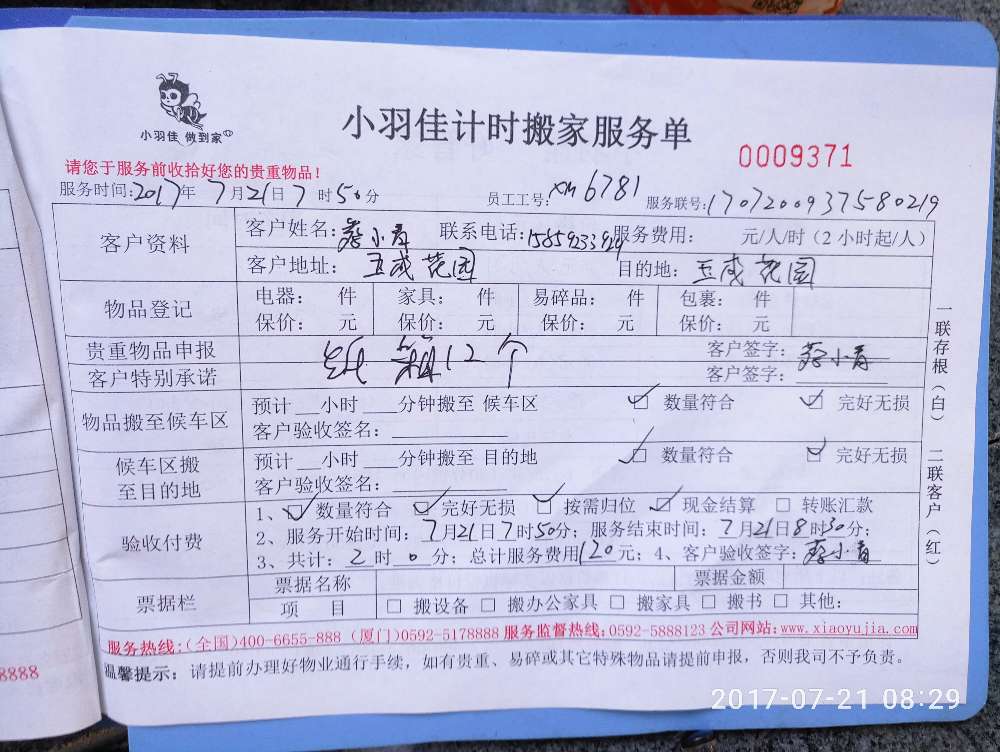 小羽佳 做到家
小羽佳计时搬家服务单
0009371
请您于服务前收拾好您的贵重物品！
服务时间:2017年 7月21日 7 时50分 员工工号:XM6781 服务联号:1707200937580219
客户资料 客户姓名:蔡小青 联系电话: 服务费用: 元/人/时（2 小时起/人）
客户地址: 五咸花园 目的地: 五咸花园
物品登记 电器: 件 家具: 件 易碎品: 件 包裹: 件
保价: 元 保价: 元 保价: 元 保价: 元
贵重物品申报 纸箱12个 客户签字: 蔡小青
客户特别承诺 客户签字:
物品搬至候车区 预计 __小时 ___分钟搬至 候车区 ☑ 数量符合 ☑ 完好无损
客户验收签名:
候车区搬至目的地 预计 __小时 ___分钟搬至 目的地 ☑ 数量符合 ☑ 完好无损
客户验收签名:
验收付费 1、☑ 数量符合 ☑ 完好无损 ☑ 按需归位 ☑ 现金结算 □ 转账汇款
2、服务开始时间: 7月21日7时50分; 服务结束时间: 7月21日8时30分;
3、共计: 2 时 0 分; 总计服务费用120元; 4、客户验收签字: 蔡小青
票据栏 票据名称 票据金额
项 目 □ 搬设备 □ 搬办公家具 □ 搬家具 □ 搬书 □ 其他:
服务热线:(全国)400-6655-888 (厦门)0592-5178888 服务监督热线:0592-5888123 公司网站:www.xiaoyujia.com
温馨提示: 请提前办理好物业通行手续，如有贵重、易碎或其它特殊物品请提前申报，否则我司不予负责。
一联存根（白）
二联客户（红）
8888
2017-07-21 08:29